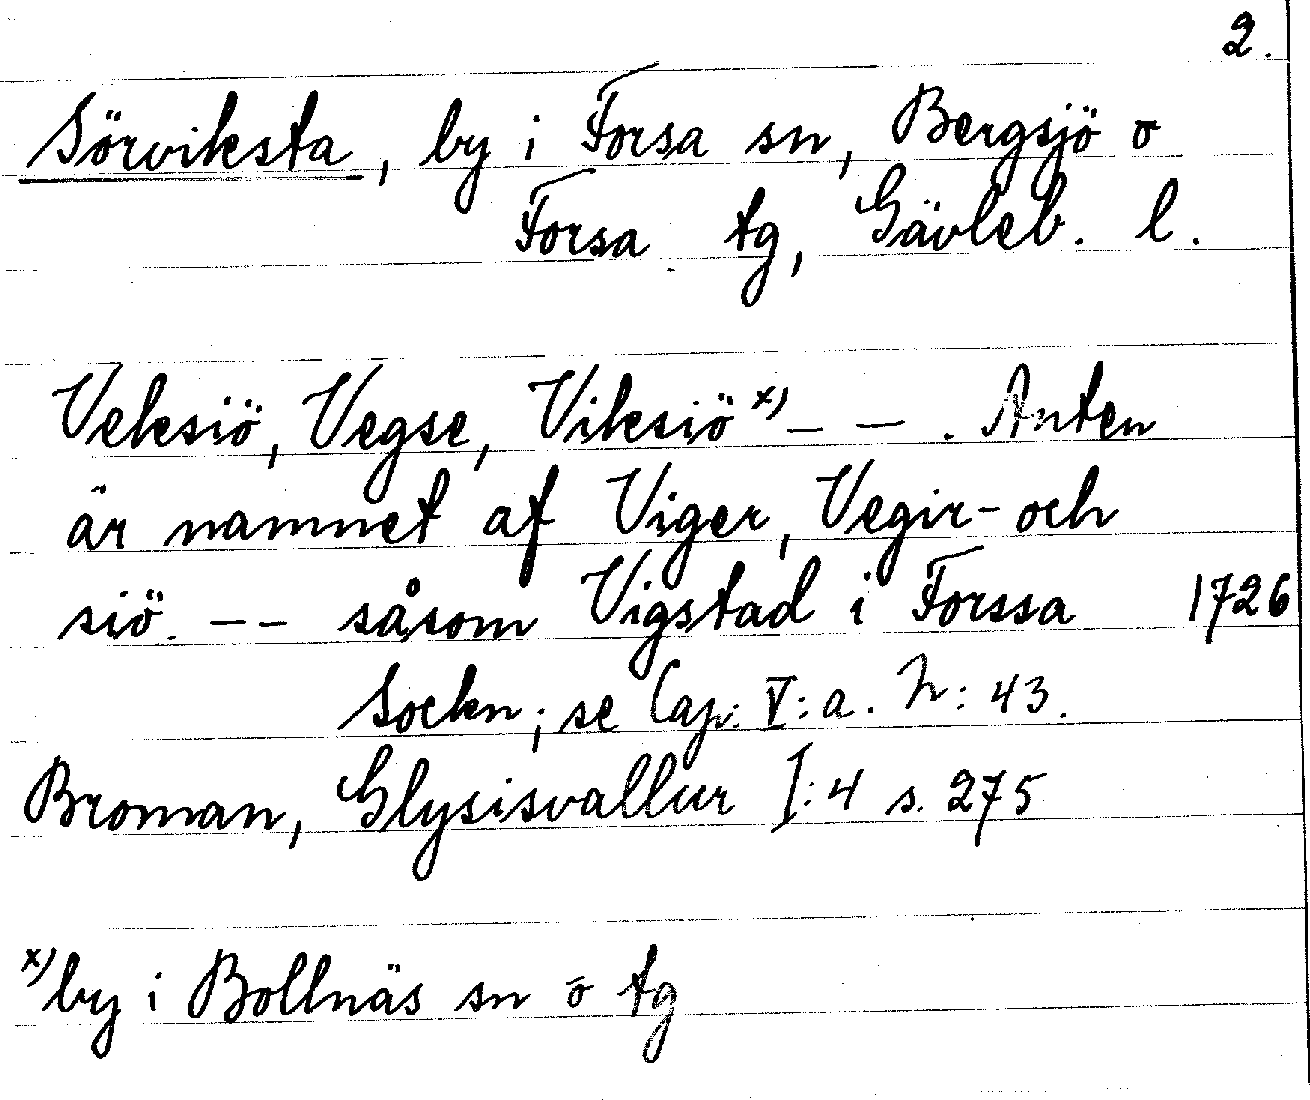 2.
Sörviksta, by i Forsa sn, Bergsjö o
Forsa tg, Gävleb. l.
Veksiö, Vegse, Viksiö x) – – . Anten
är namnet af Viger, Vegir- och
siö. – – såsom Vigstad i Forssa 1726
Sockn; se Cap: V: a. N: 43.
Broman, Glysisvallur I: 4 s. 275
x) by i Bollnäs sn o tg